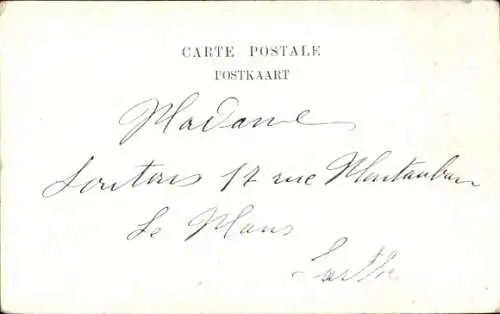 CARTE POSTALE
POSTKAART
Madame
17 rue Montauban
Le Mans
Sarthe